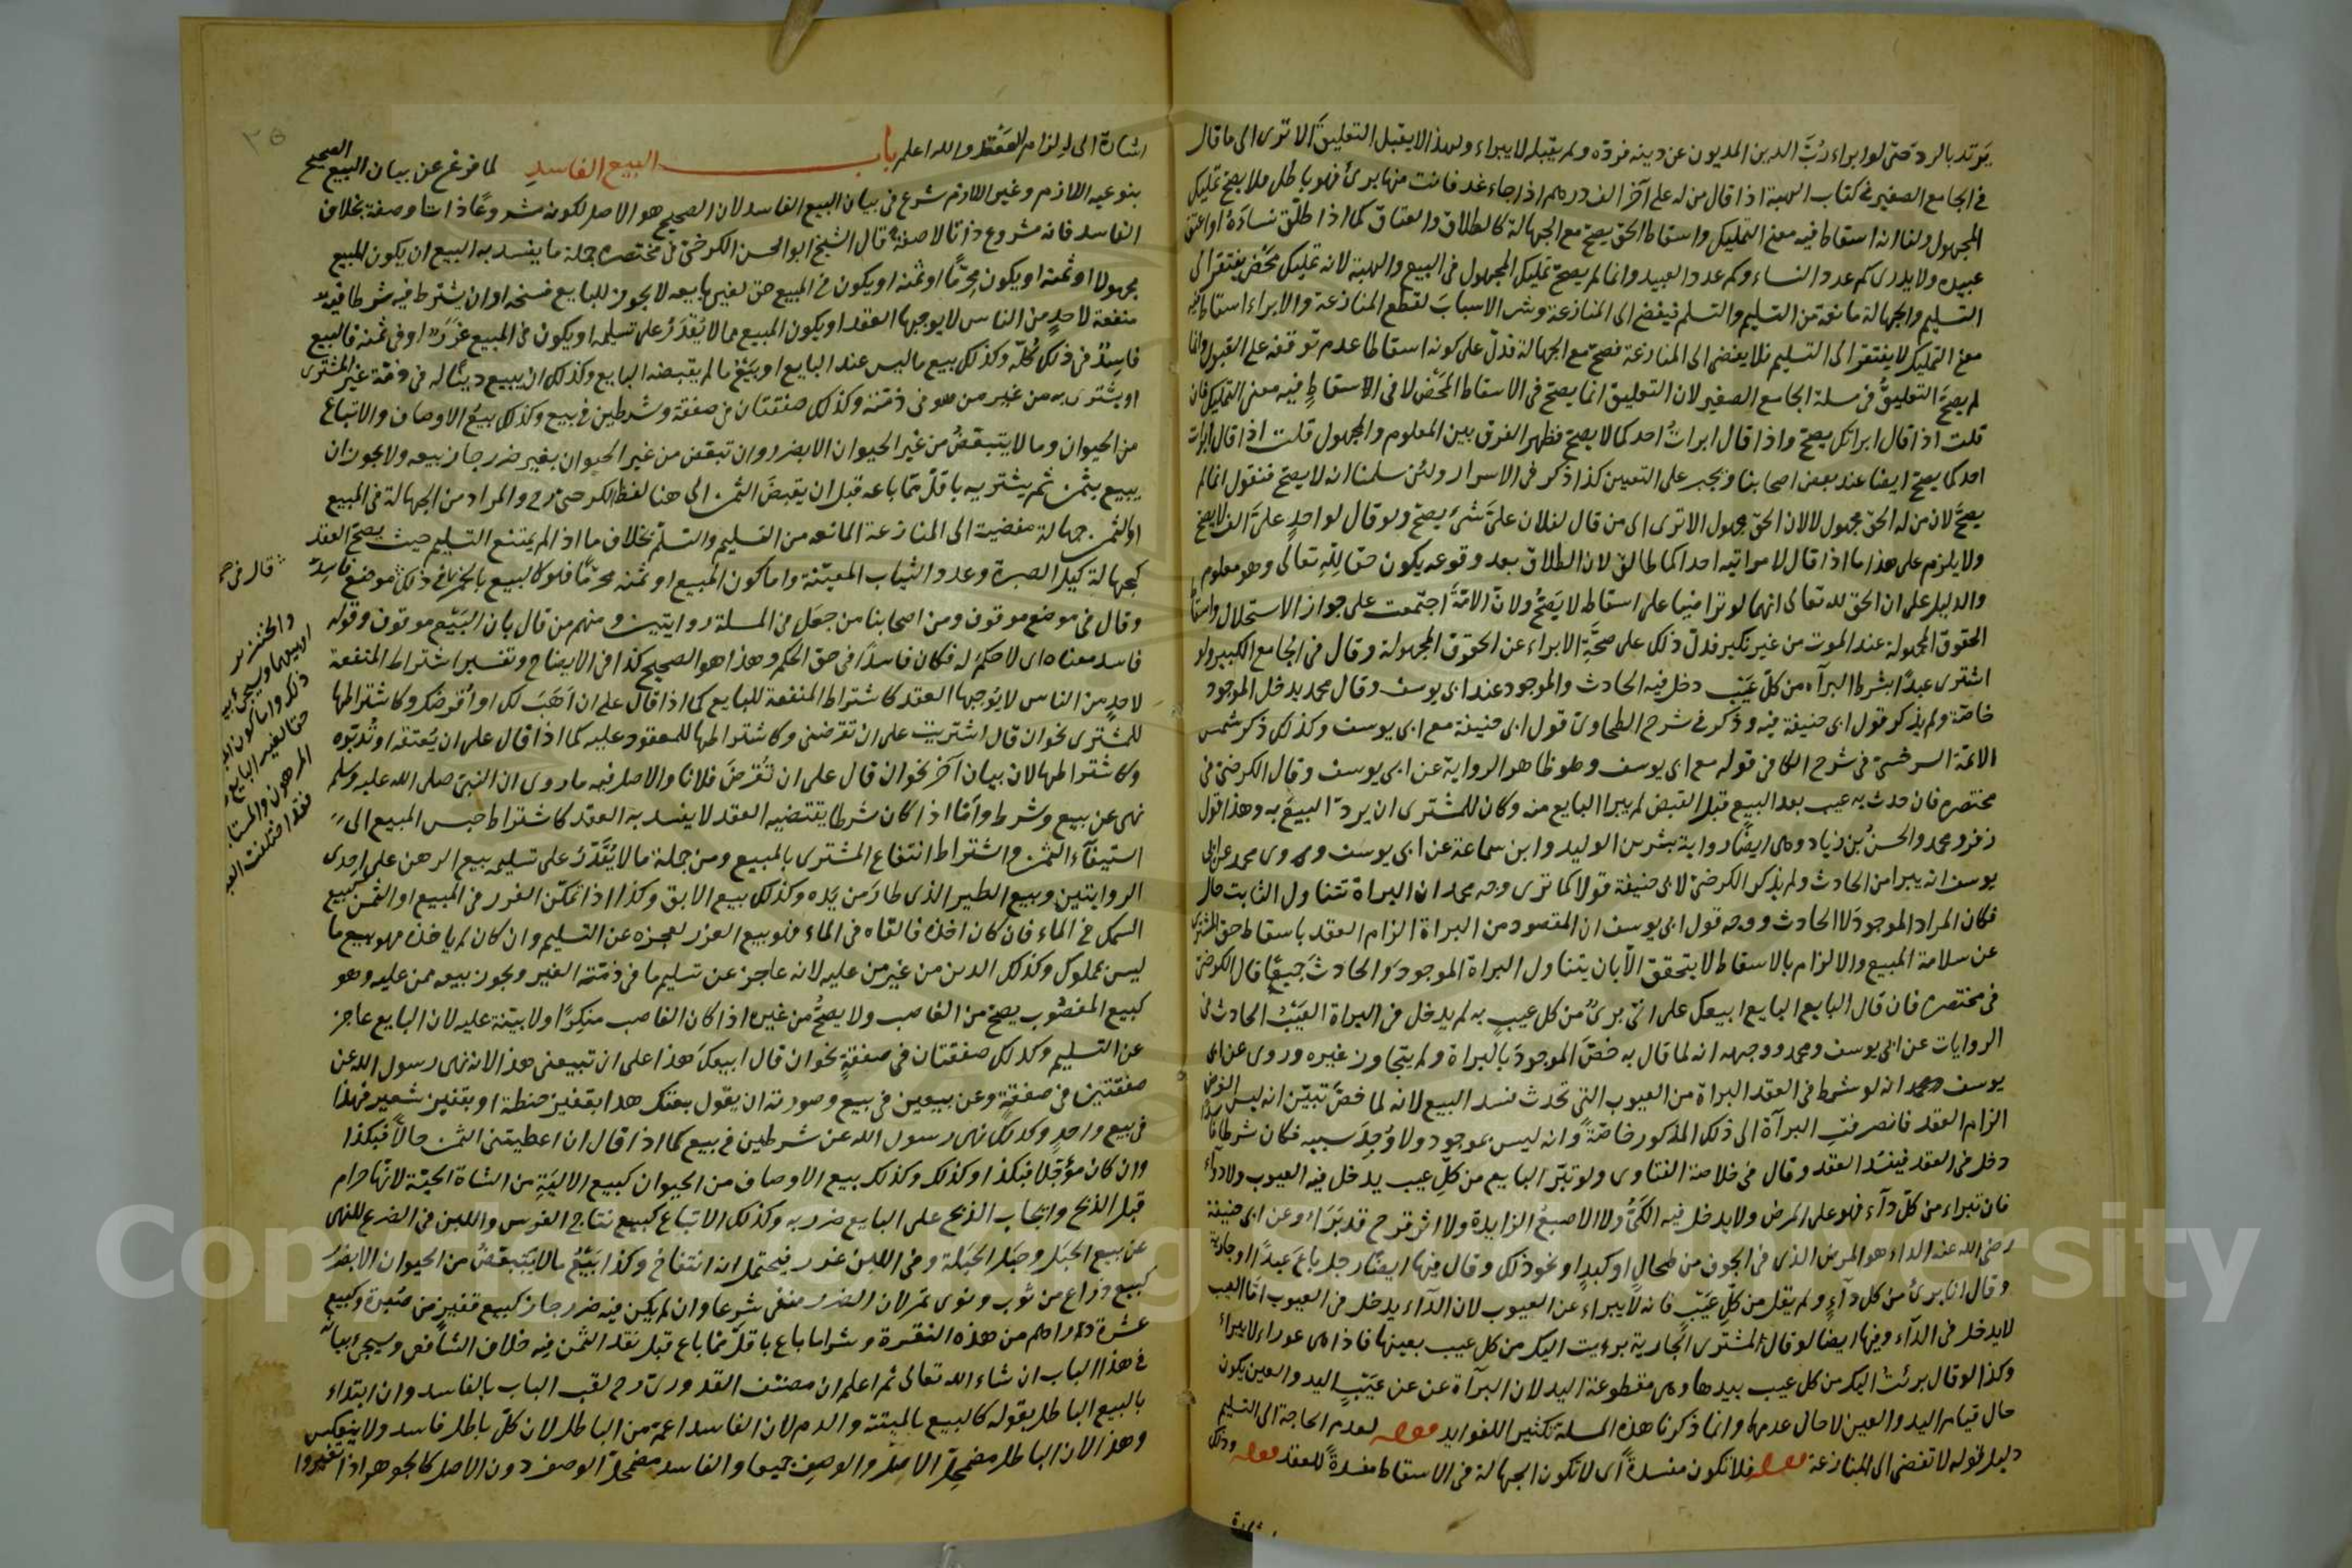 يرتد بالرد حتى لو ابراء ربّ الدين المديون عن دينه فردّه ولم يقبله لا يبراء ولهذا لا يقبل التعليق الا ترى الى ما قال
في الجامع الصغير في كتاب الهبة اذا قال من له على آخر الف درهم اذا جاء غد فانت منها برئ فهو باطل ولا يصح تمليك
المجهول ولنا انه اسقاط فيه معنى التمليك واسقاط الحق يصح مع الجهالة كالطلاق والعتاق كما اذا طلّق نساءه او اعتق
عبيده ولا يدرى كم عدد النساء وكم عدد العبيد وانما لم يصحّ تمليك المجهول فى البيع والهبة لانه تمليك محض يفتقر الى
التسليم والجهالة مانعة من التسليم والتسلم فيفضى الى المنازعة وشرع الاسباب لقطع المنازعة والابراء اسقاط فيه
معنى التمليك لا يفتقر الى التسليم فلا يفضى الى المنازعة فصح مع الجهالة فدلّ على كونه اسقاطا عدم توقفه على القبول وانما
لم يصحّ التعليق في مسئلة الجامع الصغير لان التعليق انما يصح فى الاسقاط المحض لا فى الاسقاط فيه معنى التمليك فان
قلت اذا قال ابراتك يصح واذا قال ابرات احدكما لا يصح فظهر الفرق بين المعلوم والمجهول قلت اذا قال ابرات
احدكما يصح ايضا عند بعض اصحابنا ويجبر على التعيين كذا ذكر فى الاسرار ولئن سلمنا انه لا يصح فنقول انما لم
يصحّ لان من له الحق مجهول لا لان الحق مجهول الا ترى الى من قال لفلان علىّ شئ يصح ولو قال لواحد علىّ الف لا يصح
ولا يلزم على هذا ما اذا قال لامراتيه احداكما طالق لان الطلاق بعد وقوعه يكون حقا لله تعالى وهو معلوم
والدليل على ان الحق لله تعالى انهما لو تراضيا على اسقاطه لا يصحّ ولان الامّة اجتمعت على جواز الاستحلال واسقاط
الحقوق المجهولة عند الموت من غير نكير فدلّ ذلك على صحّة الابراء عن الحقوق المجهولة وقال فى الجامع الكبير ولو
اشترى عبدا بشرط البرآه من كلّ عيب دخل فيه الحادث والموجود عند ابى يوسف وقال محمد يدخل الموجود
خاصّة ولم يذكر قول ابى حنيفة فيه وذكر فى شرح الطحاوى قول ابى حنيفة مع ابى يوسف وكذلك ذكر شمس
الائمّة السرخسى فى شرح الكافى قوله مع ابى يوسف وهو ظاهر الرواية عن ابى يوسف وقال الكرخى فى
مختصره فان حدث به عيب بعد البيع قبل القبض لم يبرا البايع منه وكان للمشترى ان يردّ البيع به وهذا قول
زفر ومحمد والحسن بن زياد وهى ايضا رواية بشر بن الوليد وابن سماعة عن ابى يوسف وروى محمد عن ابى
يوسف انه يبرا من الحادث ولم يذكر الكرخى لابى حنيفة قولا كما ترى وجه محمد ان البراة تتناول الثابت حال
فكان المراد الموجود لا الحادث ووجه قول ابى يوسف ان المقصود من البراة الزام العقد باسقاط حق المشترى
عن سلامة المبيع والالزام بالاسقاط لا يتحقق الا بان يتناول البراة الموجود والحادث جميعًا قال الكرخى
فى مختصره فان قال البايع ابيعك على انى برئ من كل عيب به لم يدخل فى البراة العيب الحادث فى
الروايات عن ابى يوسف ومحمد ووجهه انه لما قال به خصّ الموجود بالبراة ولم يتجاوز غيره وروى عن ابى
يوسف ومحمد انه لو شرط فى العقد البراة من العيوب التى تحدث فسد البيع لانه لما خصّ تبيّن انه ليس الغرض
الزام العقد فانصرفت البرآة الى ذلك المذكور خاصّة وانه ليس بموجود ولا وجد سببه فكان شرطا فاسدا
دخل فى العقد فيفسد العقد وقال فى خلاصة الفتاوى ولو تبرّا البايع من كلّ عيب يدخل فيه العيوب والادواء
فان تبراء من كلّ دآء فهو على المرض ولا يدخل فيه الكىّ ولا الاصبع الزايدة ولا اثر قرح قد برا وعن ابى حنيفة
رضى الله عنه الداء هو المرض الذى فى الجوف من طحال او كبد او نحو ذلك وقال فيها ايضا رجل باع عبدا او جارية
وقال انا برئ من كل دآء ولم يقل من كلّ عيب فانه لا يبراء عن العيوب لان الدآء يدخل فى العيوب امّا العيب
لا يدخل فى الدآء وفيها ايضا لو قال المشترى الجارية برءيت اليك من كل عيب بعينها فاذا هى عوراء لا يبراء
وكذا لو قال برئت اليك من كل عيب بيدها وهى مقطوعة اليد لان البرآة عن عن عيب اليد والعين يكون
حال قيام اليد والعين لا حال عدمها وانما ذكرنا هذه المسلة تكثيرا للفوايد قوله لعدم الحاجة الى التسليم
دليل قوله لا تفضى الى المنازعة قوله فلا تكون مفسدة اى لا تكون الجهالة فى الاسقاط مفسدة للعقد قوله وذلك
اشارة الى الزام العقد والله اعلم باب البيع الفاسد لما فرغ عن بيان البيع الصحيح
بنوعيه اللازم وغير اللازم شرع فى بيان البيع الفاسد لان الصحيح هو الاصل لكونه مشروعًا ذاتا وصفة بخلاف
الفاسد فانه مشروع ذاتا لا صفة قال الشيخ ابو الحسن الكرخى فى مختصره جملة ما يفسد به البيع ان يكون المبيع
مجهولا او ثمنه او يكون محرّمًا او ثمنه او يكون فى المبيع حق لغير بايعه لا يجوز للبايع فسخه او ان يشترط فيه شرطا فيه
منفعة لاحد من الناس لا يوجبها العقد او يكون المبيع مما لا يقدر على تسليمه او يكون فى المبيع غرر او فى ثمنه فالبيع
فاسد فى ذلك كلّه وكذلك بيع ما ليس عند البايع او بيع ما لم يقبضه البايع وكذلك ان يبيع دينا له فى ذمة غير المشترى
او يشترى به من غير من هو فى ذمته وكذلك صفقتان فى صفقة وشرطين فى بيع وكذلك بيع الاوصاف والاتباع
من الحيوان وما لا يتبعّض من غير الحيوان الا بضرر وان تبعّض من غير الحيوان بغير ضرر جاز بيعه ولا يجوز ان
يبيع بثمن ثم يشتريه باقلّ ممّا باعه قبل ان يقبض الثمن الى هنا لفظ الكرخى رح والمراد من الجهالة فى المبيع
او الثمن جهالة مفضية الى المنازعة المانعه من التسليم والتسلّم بخلاف ما اذا لم يمتنع التسليم حيث يصح العقد
كجهالة كيل الصبرة وعدد الثياب المعيّنة واما كون المبيع او ثمنه محرّمًا فلو كالبيع بالخمر فى ذلك موضع فاسد
وقال فى موضع موقوف ومن اصحابنا من جعل فى المسلة روايتين ومنهم من قال بان البيع موقوف وقوله
فاسد معناه اى لا حكم له فكان فاسدًا فى حق الحكم وهذا هو الصحيح كذا فى الايضاح وتفسير اشتراط المنفعة
لاحد من الناس لا يوجبها العقد كاشتراط المنفعة للبايع كما اذا قال على ان اهب لك او اقرضك وكاشتراطها
للمشترى نحو ان قال اشتريت على ان تقرضنى وكاشتراطها للمعقود عليه كما اذا قال على ان يعتقه او تدبّره
وكاشتراطها لانسان آخر نحو ان قال على ان تقرض فلانا والاصل فيه ما روى ان النبى صلى الله عليه وسلم
نهى عن بيع وشرط وامّا اذا كان شرطا يقتضيه العقد لا يفسد به العقد كاشتراط حبس المبيع الى
استيفآء الثمن واشتراط انتفاع المشترى بالمبيع ومن جملة ما لا يقدر على تسليمه بيع الرهن على احدى
الروايتين وبيع الطير الذى طار من يده وكذلك بيع الابق وكذا اذا تمكّن الغرر فى المبيع او الثمن كبيع
السمك فى الماء فان كان اخذه فالقاه فى الماء فلو بيع الغرر لعجزه عن التسليم وان كان لم ياخذه فهو بيع ما
ليس بملوك وكذلك الدين من غير من عليه لانه عاجز عن تسليم ما فى ذمّة الغير ويجوز بيعه ممن عليه وهو
كبيع المغصوب يصح من الغاصب ولا يصحّ من غيره اذا كان الغاصب منكرًا ولا بيّنة عليه لان البايع عاجز
عن التسليم وكذلك صفقتان فى صفقة نحو ان قال ابيعك هذا على ان تبيعنى هذا لانه نهى رسول الله عن
صفقتين فى صفقة وعن بيعين فى بيع وصورته ان يقول بعتك هذا بقفيز حنطة او بقفيز شعير فهذا
فى بيع واحد وكذلك نهى رسول الله عن شرطين فى بيع كما اذا قال ان اعطيتنى الثمن حالا فبكذا
وان كان مؤجّلا فبكذا وكذلك وكذلك بيع الاوصاف من الحيوان كبيع الالية من الشاة الحيّة لانّها حرام
قبل الذبح وايجاب الذبح على البايع ضرر به وكذلك الاتباع كبيع نتاج الفرس واللبن فى الضرع للنهى
عن بيع الحبل وحبل الحبلة وفى اللبن غرر فيحتمل انه انتفاخ وكذا بيع ما لا يتبعّض من الحيوان الا بضرر
كبيع ذراع من ثوب ونوى تمر لان الضرر منفى شرعا وان لم يكن فيه ضرر جاز كبيع قفيز من صبرة وكبيع
عشرة دراهم من هذه النقرة وشرا ما باع باقلّ ممّا باع قبل نقد الثمن فيه خلاف الشافعى وسيجئ بيانه
فى هذا الباب ان شاء الله تعالى ثم اعلم ان مصنّف القدورى رح لقب الباب بالفاسد وان ابتداء
بالبيع الباطل بقوله كالبيع بالميتة والدم لان الفاسد اعمّ من الباطل لان كلّ باطل فاسد ولا ينعكس
وهذا لان الباطل مضمحلّ الاصل والوصف جميعا والفاسد مضمحلّ الوصف دون الاصل كالجوهر اذا تغيّر
قال فى
والخنزير
ذكر واما كون
حقا لغير البايع
المرهون والمستا
فقد اختلفت
٢٥
Copyright © King Saud University